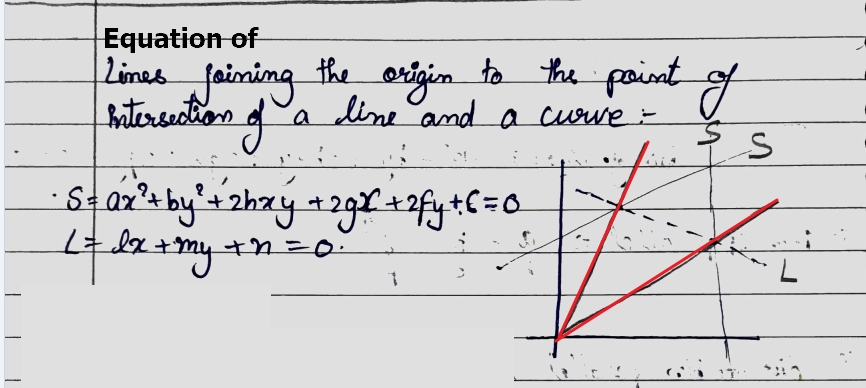 Equation of
Lines joining the origin to the point of
Intersection of a line and a curve :-
S
S
S = ax²+by²+2hxy+2gx+2fy+c=0
L = lx+my+n=0.
L